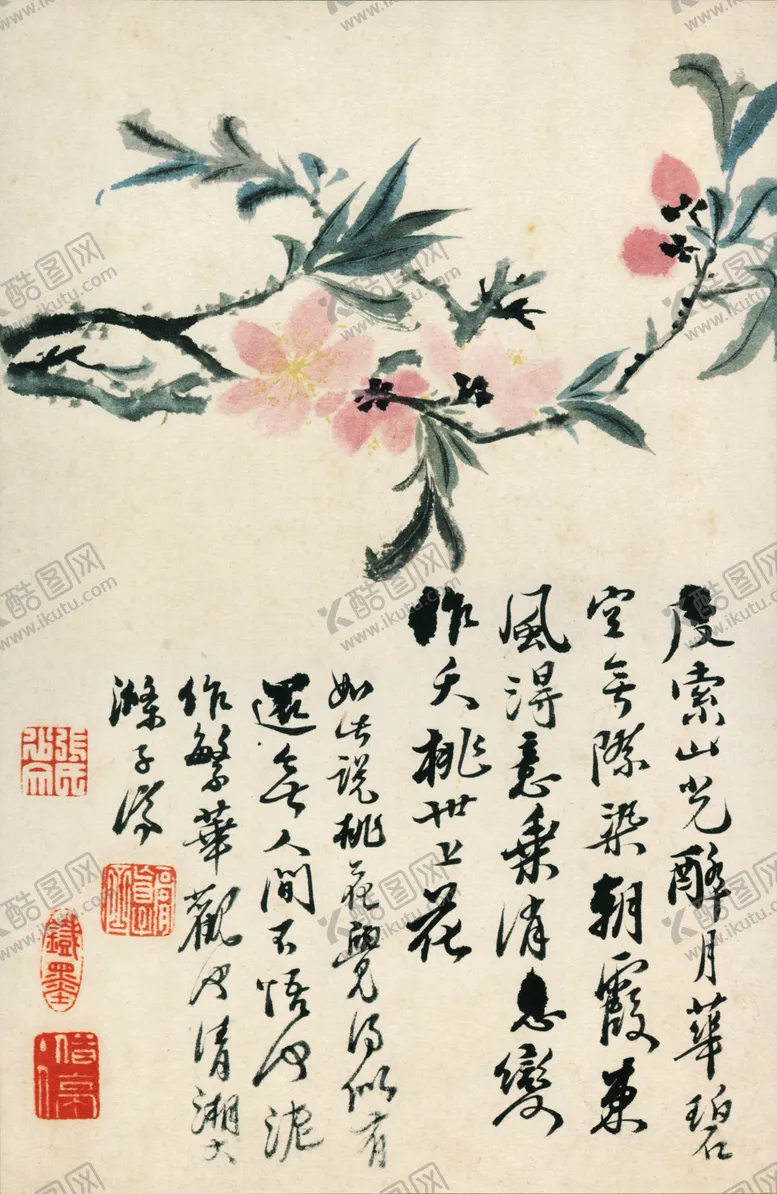 度索山光醉月華碧
空無際染朝霞東
風得意乘消息變
作夭桃世上花
如此說桃花覺得似有
還無人間不悟何泥
作繁華觀何清湘大
滌子濟
張氏
鐵墨
酷图网
www.ikutu.com